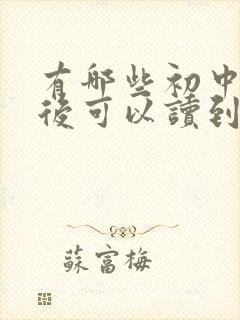 有哪些初中
後可以讀到
蘇富梅